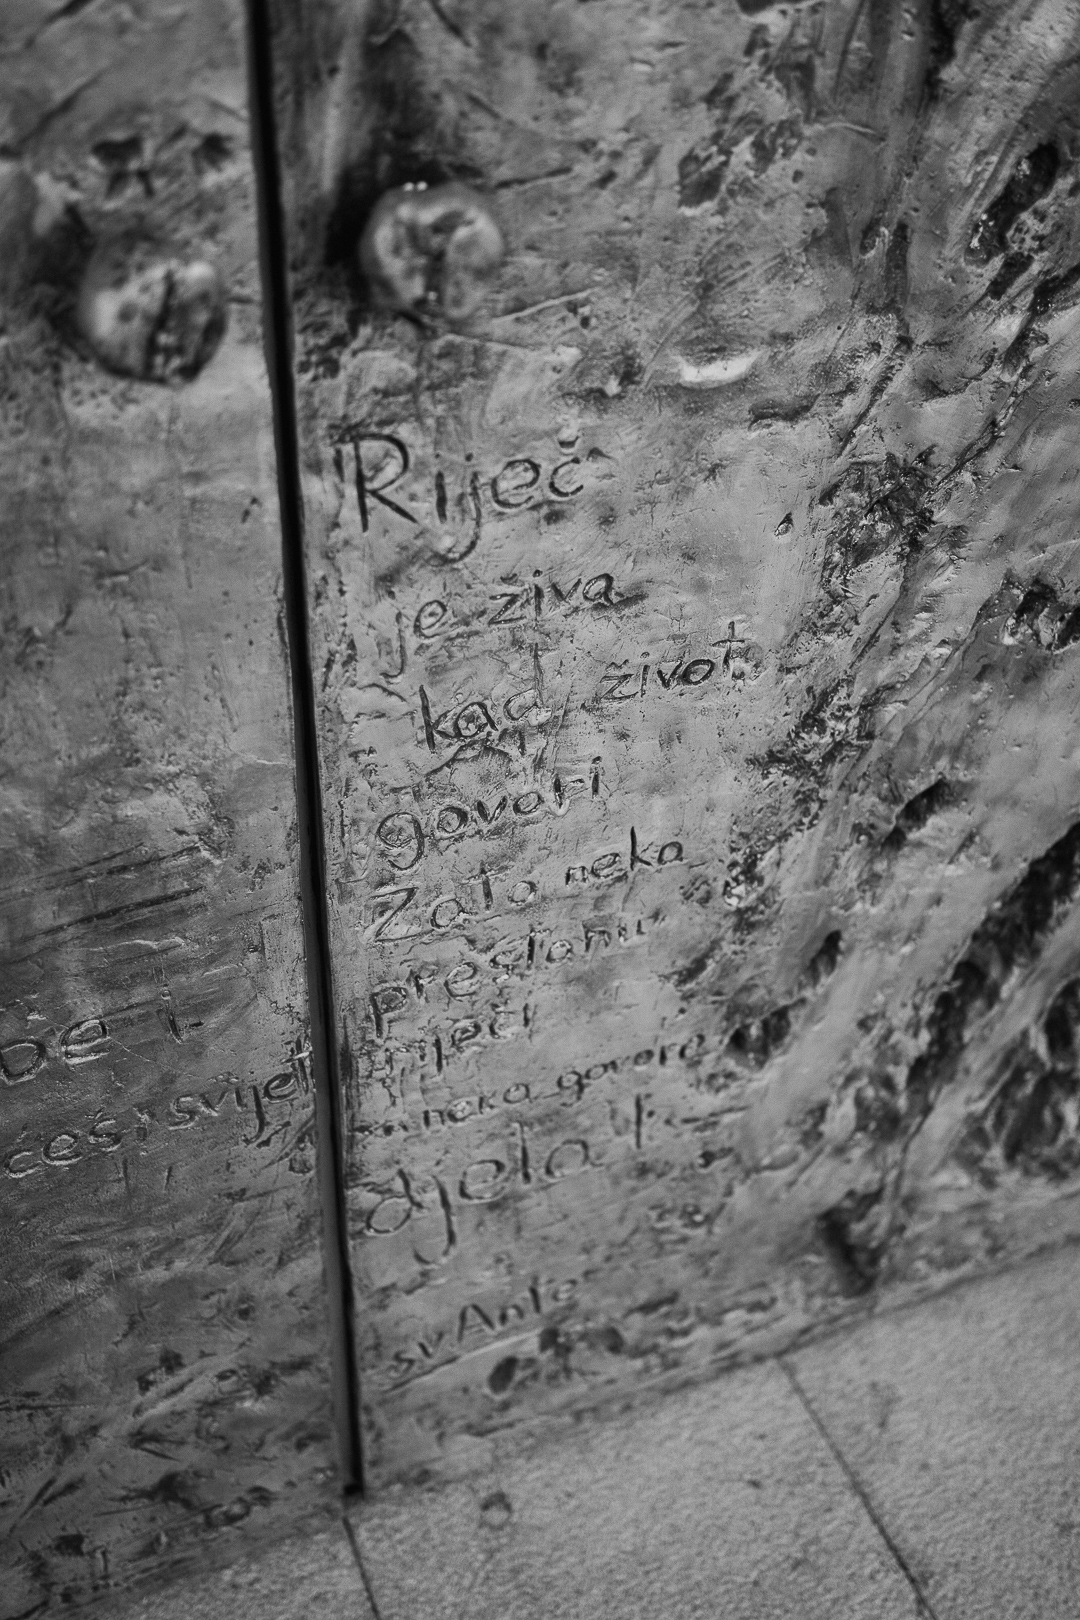 Riječ
je živa
kad život
govori
Zato neka
prestanu
riječi
neka govore
djela!
sv Ante
be i
ćeš i svijet